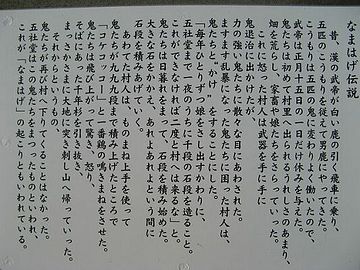 なまはげ伝説
昔、漢の武帝が白い鹿の引く飛車に乗り、
五匹のコウモリを従えて男鹿にやってきた。
コウモリは五匹の鬼に変わりよく働いたので、
武帝は正月十五日の一日だけ休みを与えた。
鬼たちは初めて村里へ出られるうれしさのあまり、
畑を荒らし、家畜や娘たちをさらっていった。
これに怒った村人は武器を手に手に
鬼退治に出かけたが、
力の強い鬼たちに散々な目にあわされた。
ますます乱暴になった鬼たちに困った村人は、
鬼たちと“かけ”をすることにした。
「毎年ひとりずつ娘をさし出すかわりに、
五社堂まで一夜のうちに千段の石段を造ること。
これができなければ二度と村へは来るな」と。
鬼たちは日暮れをまって、石段を積み始めた。
大きな石をかかえ、あれよあれよという間に
石段を積みあげていく。
あわてた村人は、ものまね上手を使って
鬼たちが九九九段まで積み上げたところで
「コケコッコー」と一番鶏の鳴きまねをさせた。
鬼たちは飛び上がって驚き、怒り、
そばにあった千年杉を引き抜き、
まっさかさまに大地に突き刺し山へ帰っていった。
それからというもの
鬼たちが再び村へ降りてくることはなかった。
五社堂はこの鬼たちをまつったものといわれ、
これが「なまはげ」の起こりともいわれている。